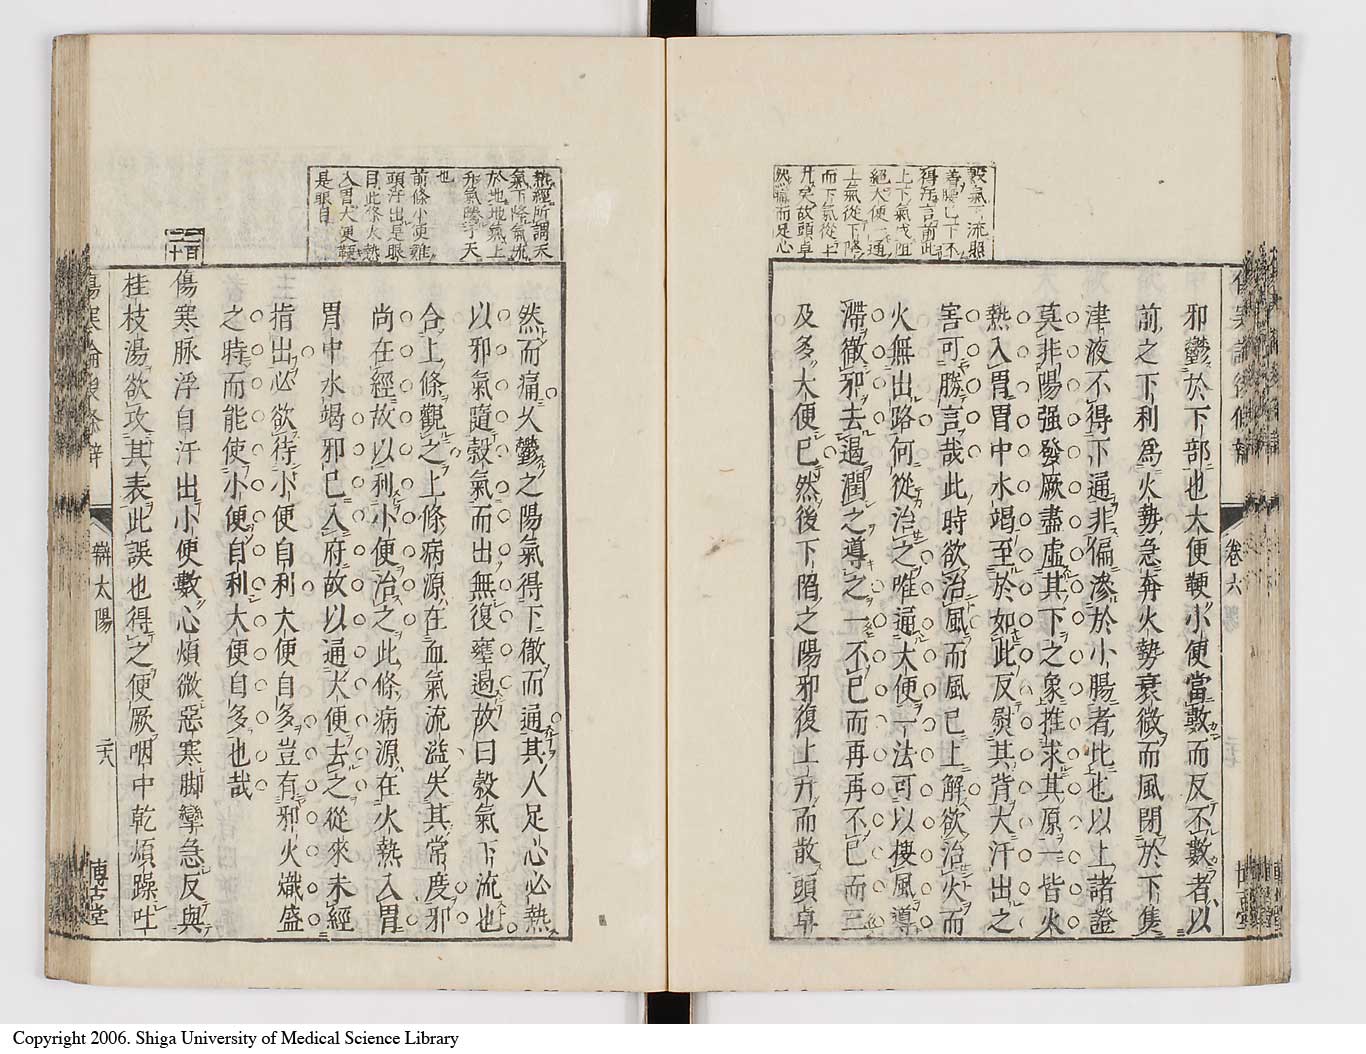 邪鬱於下部也大便鞕小便當數而反不數者以
前之下利爲火勢急奔火勢衰微而風閉於下集
津液不得下通非偏滲於小腸者比也以上諸證
莫非陽强發厥盡虛其下之象推求其原一皆火
熱入胃胃中水竭至於如此反熨其背大汗出之
害可勝言哉此時欲治風而風已上解欲治火而
火無出路何從治之唯通大便一法可以棲風導
滯徹邪去遏潤之導之一不已而再再不已而三
及多大便已然後下陷之陽邪復上升而散頭卓
穀氣下流照
着腰已下不
得汗言前此
上下氣戊阻
絕大便一通
上氣從下降
而下氣從上
升矣故頭卓
然痛而足心
卷六
然而痛久鬱之陽氣得下徹而通其人足心必熱
以邪氣隨穀氣而出無復壅遏故曰穀氣下流也
合上條觀之上條病源在血氣流溢失其常度邪
尚在經故以利小便治之此條病源在火熱入胃
胃中水竭邪已入府故以通大便去之從來未經
指出必欲待小便自利大便自多豈有邪火熾盛
之時而能使小便自利大便自多也哉
傷寒脉浮自汗出小便數心煩微惡寒脚攣急反與
桂枝湯欲攻其表此誤也得之便厥咽中乾煩躁吐
熱經所謂天
氣下降氣流
於地地氣上
升氣騰于天
也
前條小便難
頭汗出是眼
目此條火熱
入胃大便鞕
是眼目
一百
二十
傷寒論後條辨
辨太陽
二十八
博古堂
Copyright 2006. Shiga University of Medical Science Library